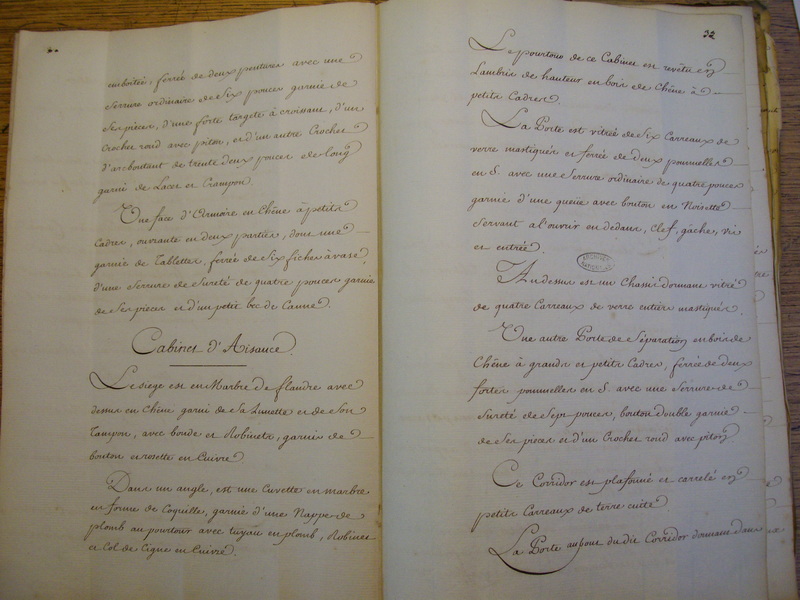 emboîtée, ferrée de deux pentures avec une
Serrure ordinaire de Six pouces garnie de
Ses pièces, d'une forte targete à croissant, d'un
Crochet rond avec piton, et d'un autre Crochet
d'arcboutant de trente deux pouces de long
garni de Lacet et Crampon
Une face d'Armoire en Chêne à petits
Cadres, ouvrante en deux parties, dont une
garnie de Tablettes, ferrée de Six fiches à vase,
d'une Serrure de Sureté de quatre pouces garnie
de Ses pièces et d'un petit bec de Canne
Cabinet d'Aisance.
Le siege est en Marbre de flandre avec
dessus en Chêne garni de Sa Lunette et de Son
Tampon, avec bonde et Robinets, garnis de
bouton et rosette en Cuivre
Dans un angle, est une Cuvette en marbre
en forme de Coquille, garnie d'une Nappe de
plomb au pourtour avec tuyau en plomb, Robinet
et Col de Cigne en Cuivre.
32
Le pourtour de ce Cabinet est revêtu en
Lambris de hauteur en bois de Chêne à
petits Cadres
La Porte est vitrée de Six Carreaux de
verre mastiqués et ferrée de deux poumelles
en S. avec une Serrure ordinaire de quatre pouces
garnie d'une queue avec bouton en Noisette
Servant à l'ouvrir en dedans, Clef, gâches, vis
et entrée.
ARCHIVES NATIONALES
Au dessus est un Chassis dormant vitré
de quatre Carreaux de verre entiers mastiqués
Une autre Porte de Séparation en bois de
Chêne à grands et petits Cadres, ferrée de deux
fortes poumelles en S. avec une Serrure de
Sureté de Sept pouces, bouton double garnie
de Ses pièces et d'un Crochet rond avec piton
Ce Corridor est plafonné et carrelé en
petits Carreaux de terre cuite
La Porte au bout du dit Corridor donnant dans